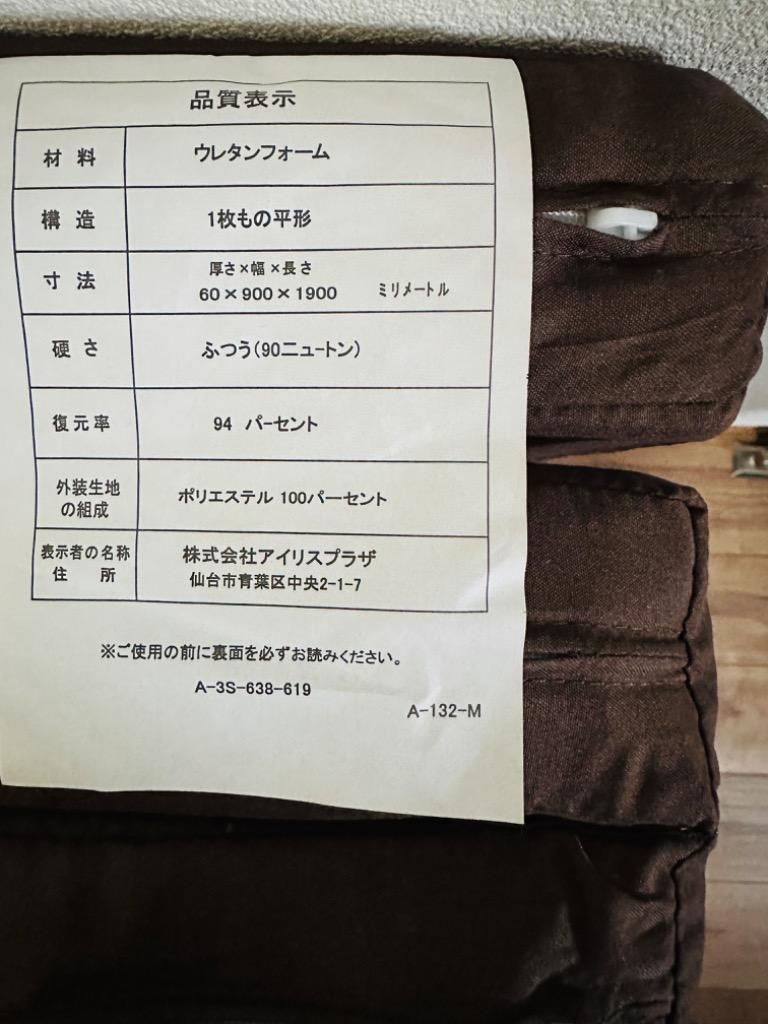 品質表示
材料 ウレタンフォーム
構造 1枚もの平形
厚さ×幅×長さ
寸法 60×900×1900 ミリメートル
硬さ ふつう(90ニュートン)
復元率 94 パーセント
外装生地の組成 ポリエステル 100パーセント
表示者の名称 株式会社アイリスプラザ
住所 仙台市青葉区中央2-1-7
※ご使用の前に裏面を必ずお読みください。
A-3S-638-619
A-132-M